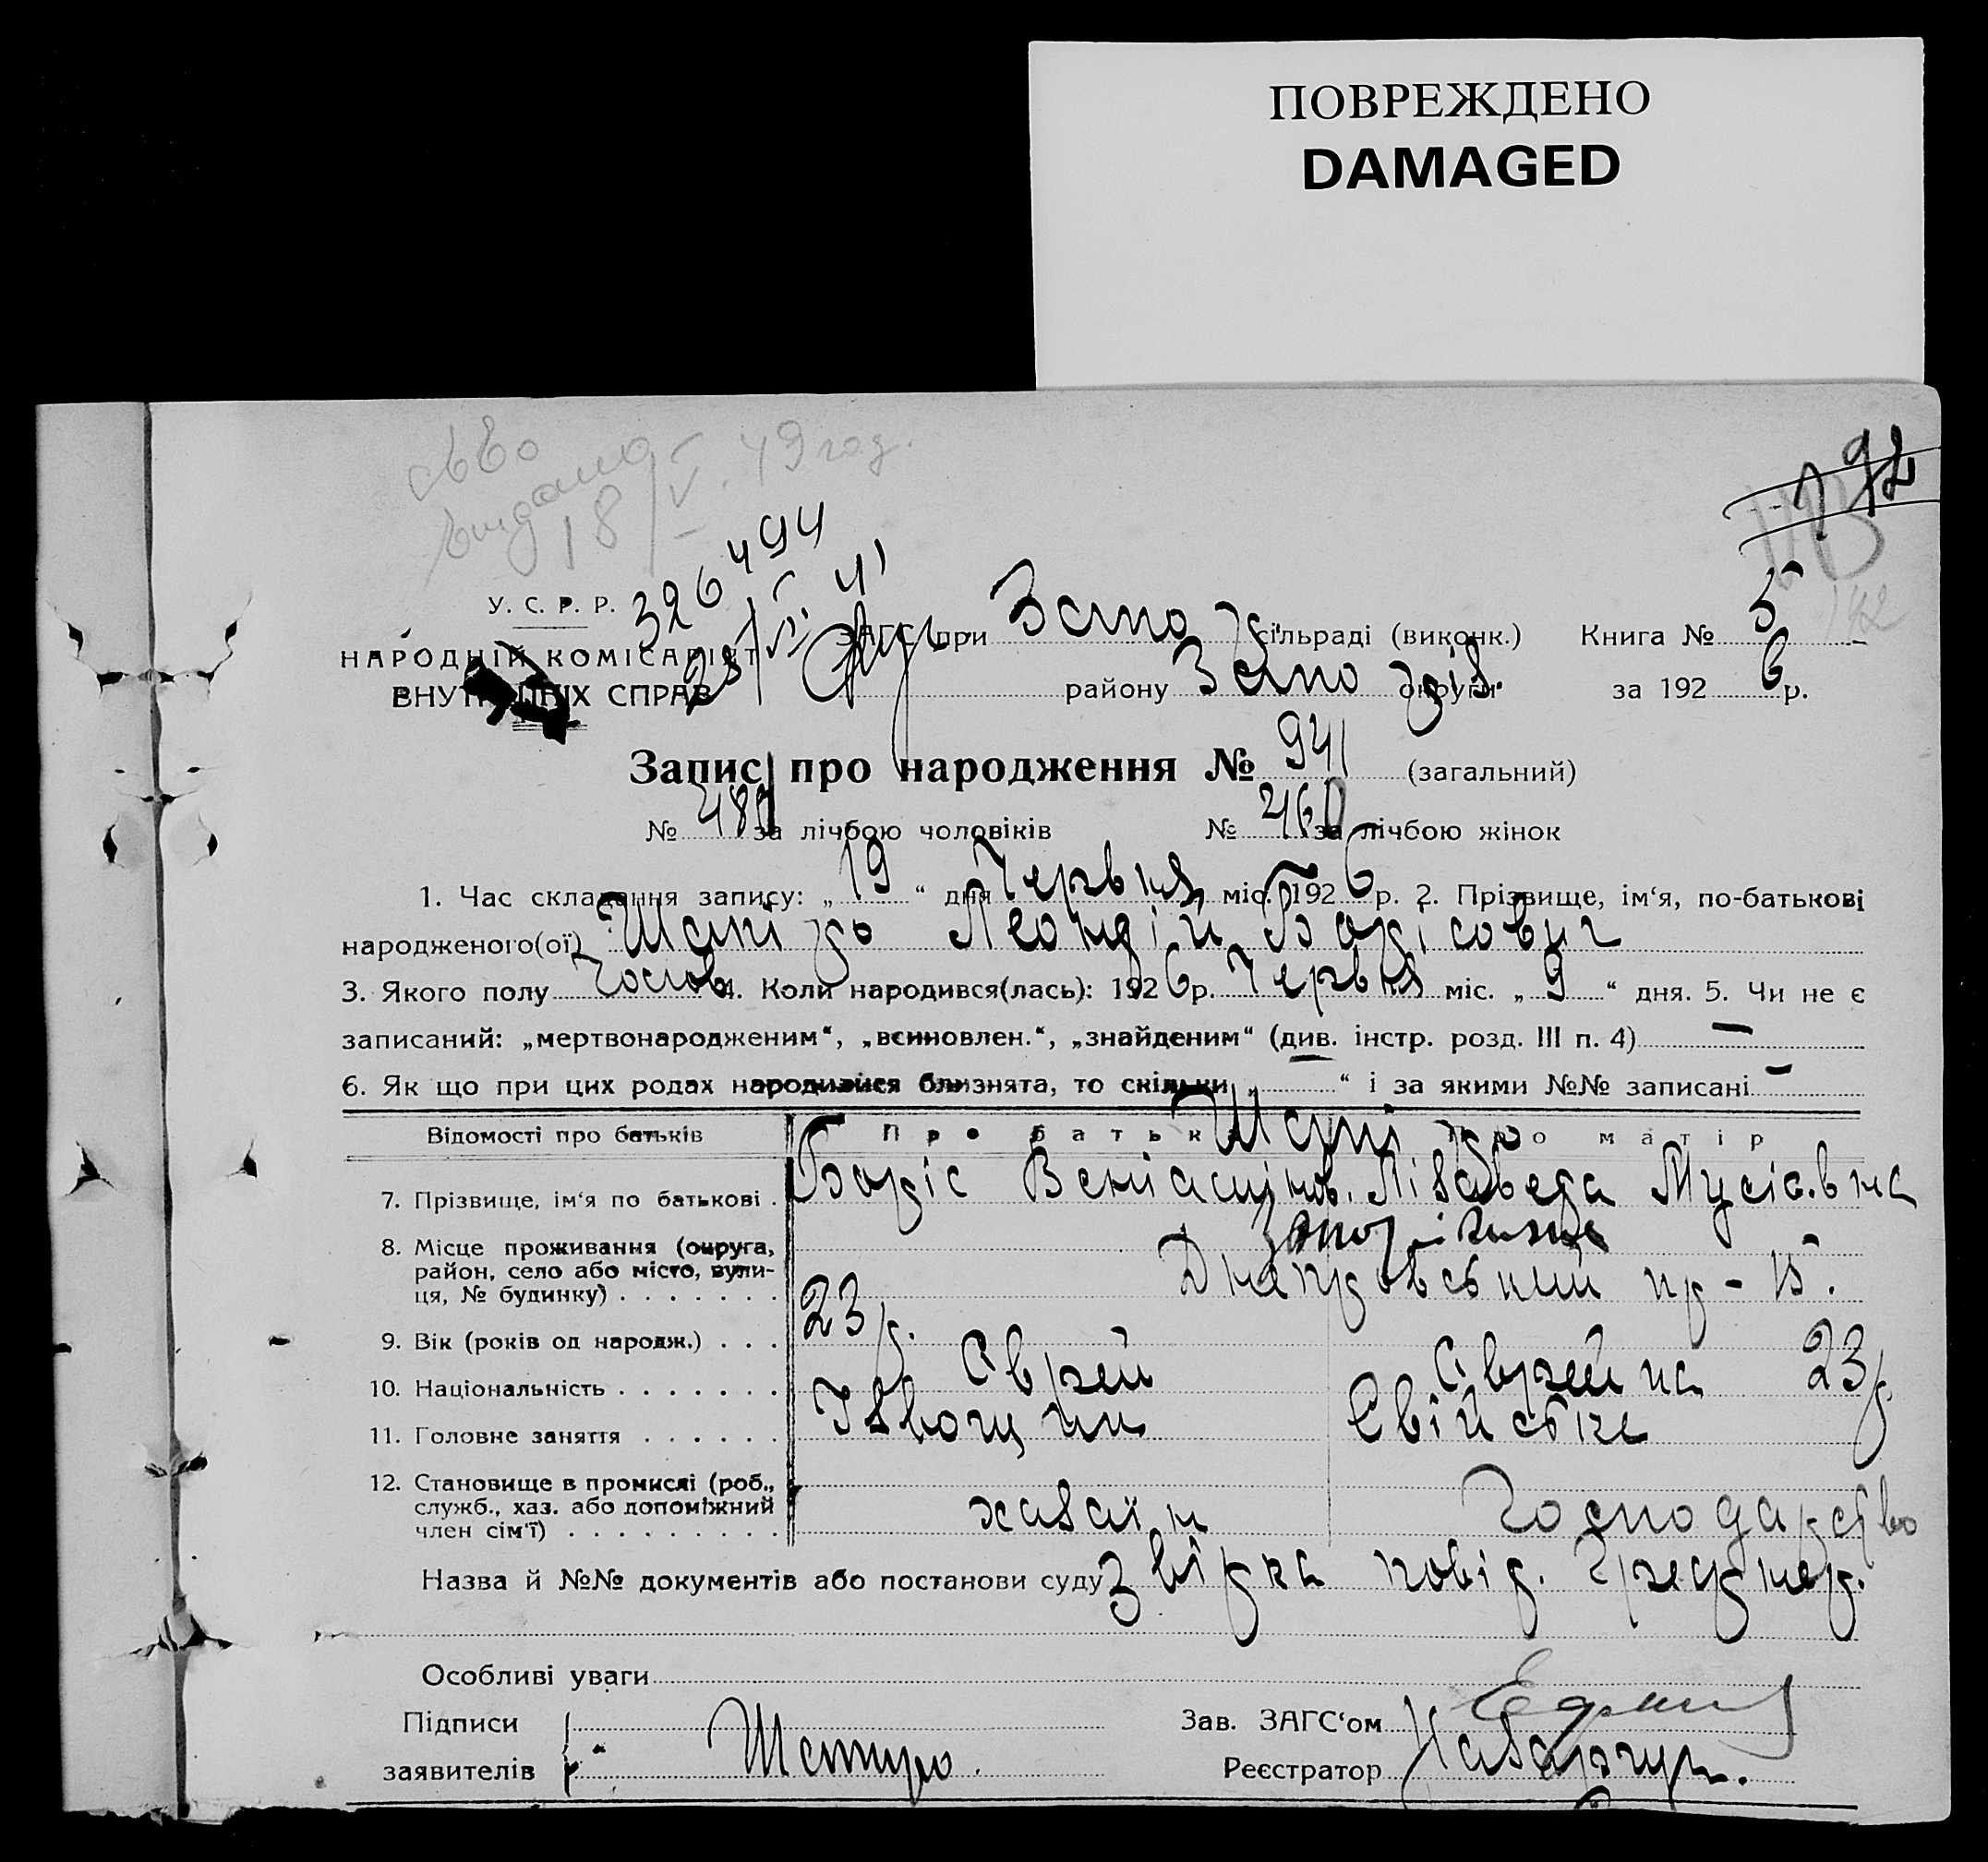 ПОВРЕЖДЕНО
DAMAGED
св-во
видано
18/V. 49 год.
У. С. Р. Р.
326494
ЗАГС при Запо сільраді (виконк.) Книга № 5
НАРОДНІЙ КОМІСАРІЯТ
ВНУТРІШНІХ СПРАВ
району Запоріз. округи за 1926 р.
Запис про народження № 941 (загальний)
№ 481 за лічбою чоловіків № 460 за лічбою жінок
1. Час складання запису: „19“ дня Червня міс. 1926 р. 2. Прізвище, ім‘я, по-батькові
народженого(ої) Шапіро Леондій Борісович
3. Якого полу Чолов. 4. Коли народився(лась): 1926 р. Червня міс. „9“ дня. 5. Чи не є
записаний: „мертвонародженим“, „всиновлен.“, „знайденим“ (див. інстр. розд. III п. 4) —
6. Як що при цих родах народилися близнята, то скільки „—“ і за якими №№ записані —
Відомості про батьків Про батька Про матір
Шапіро
7. Прізвище, ім‘я по батькові . Боріс Веніамінов. Лізавета Мусіевна
8. Місце проживання (округа,
район, село або місто, вули-
ця, № будинку) . . . . . . .
Запоріжжя
Днепровський пр-15.
9. Вік (років од народж.) . . . 23 р. 23 р.
10. Національність . . . . . . . Єврей Єврейка
11. Головне заняття . . . . . . Ізвощик Свійське
12. Становище в промислі (роб.,
служб., хаз. або допоміжний
член сім‘ї) . . . . . . . . .
хазаїн Господарство
Назва й №№ документів або постанови суду Звірка повід.
Особливі уваги
Підписи
заявителів
Шапиро.
Зав. ЗАГС‘ом
Реєстратор